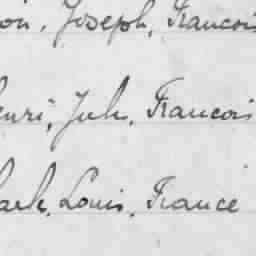 Joseph, Francois
Henri, Jules, Francois
Louis, France